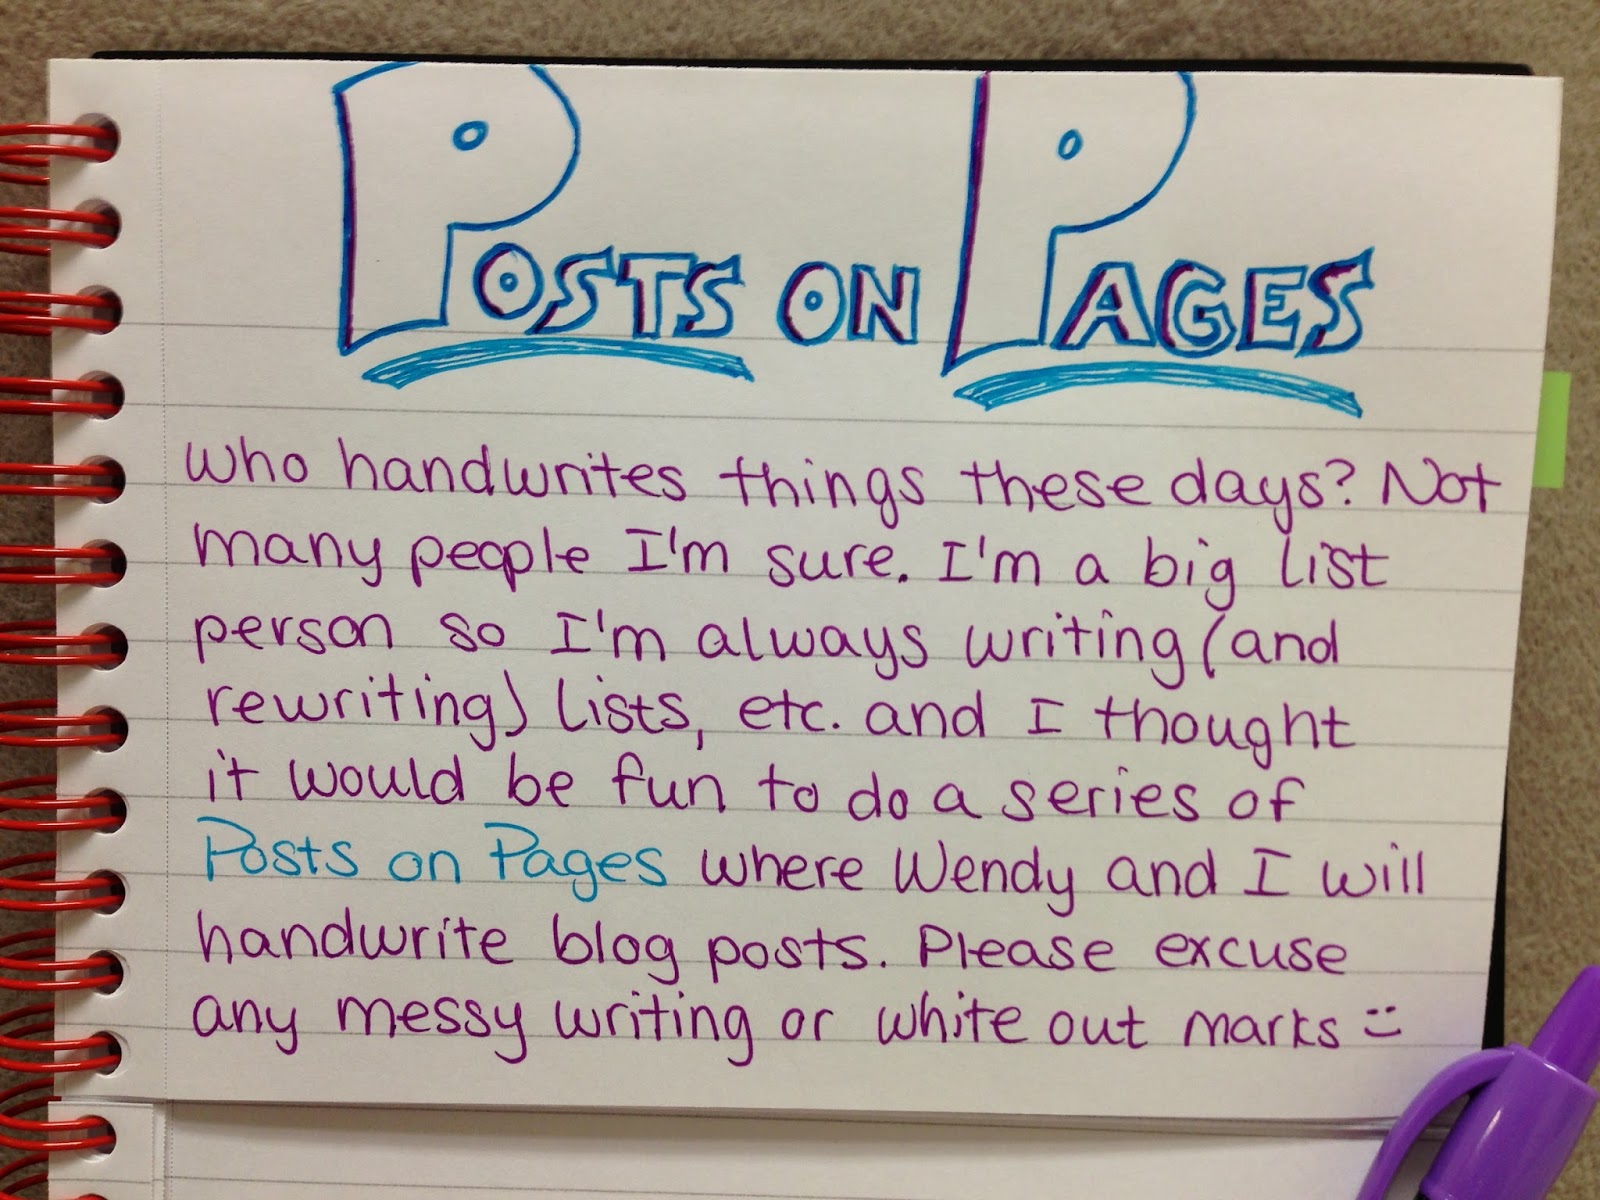 POSTS ON PAGES
Who handwrites things these days? Not
many people I'm sure. I'm a big list
person so I'm always writing (and
rewriting) lists, etc. and I thought
it would be fun to do a series of
Posts on Pages where Wendy and I will
handwrite blog posts. Please excuse
any messy writing or white out marks :)